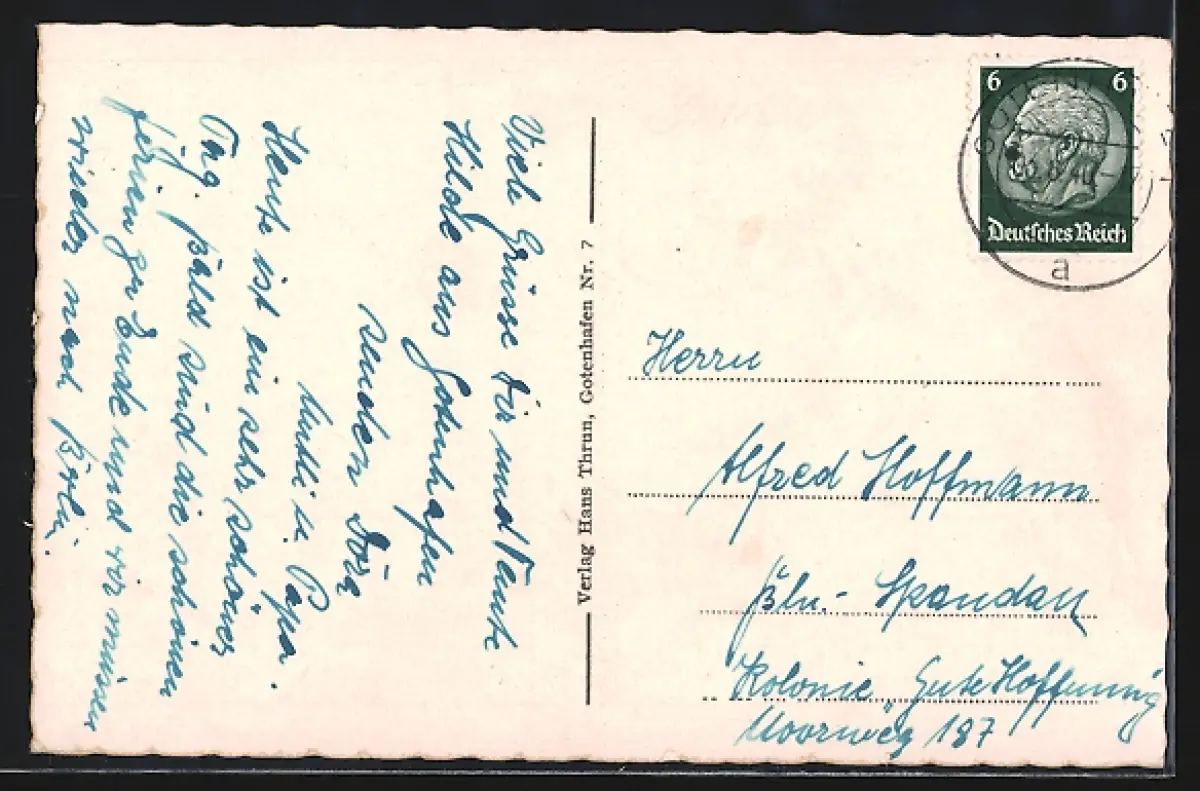 Viele Grüsse Dir und Tante
Hilde aus Gotenhafen
senden Jörg
Mutti u. Pappa.
Heute ist ein sehr schöner
Tag. Bald sind die schönen
Ferien zu Ende und wir müssen
wieder nach Berlin.
Verlag Hans Thrun, Gotenhafen Nr. 7
6 6
Deutsches Reich
a
Herrn
Alfred Hoffmann
Bln.- Spandau
Kolonie Gute Hoffnung
Moorweg 187